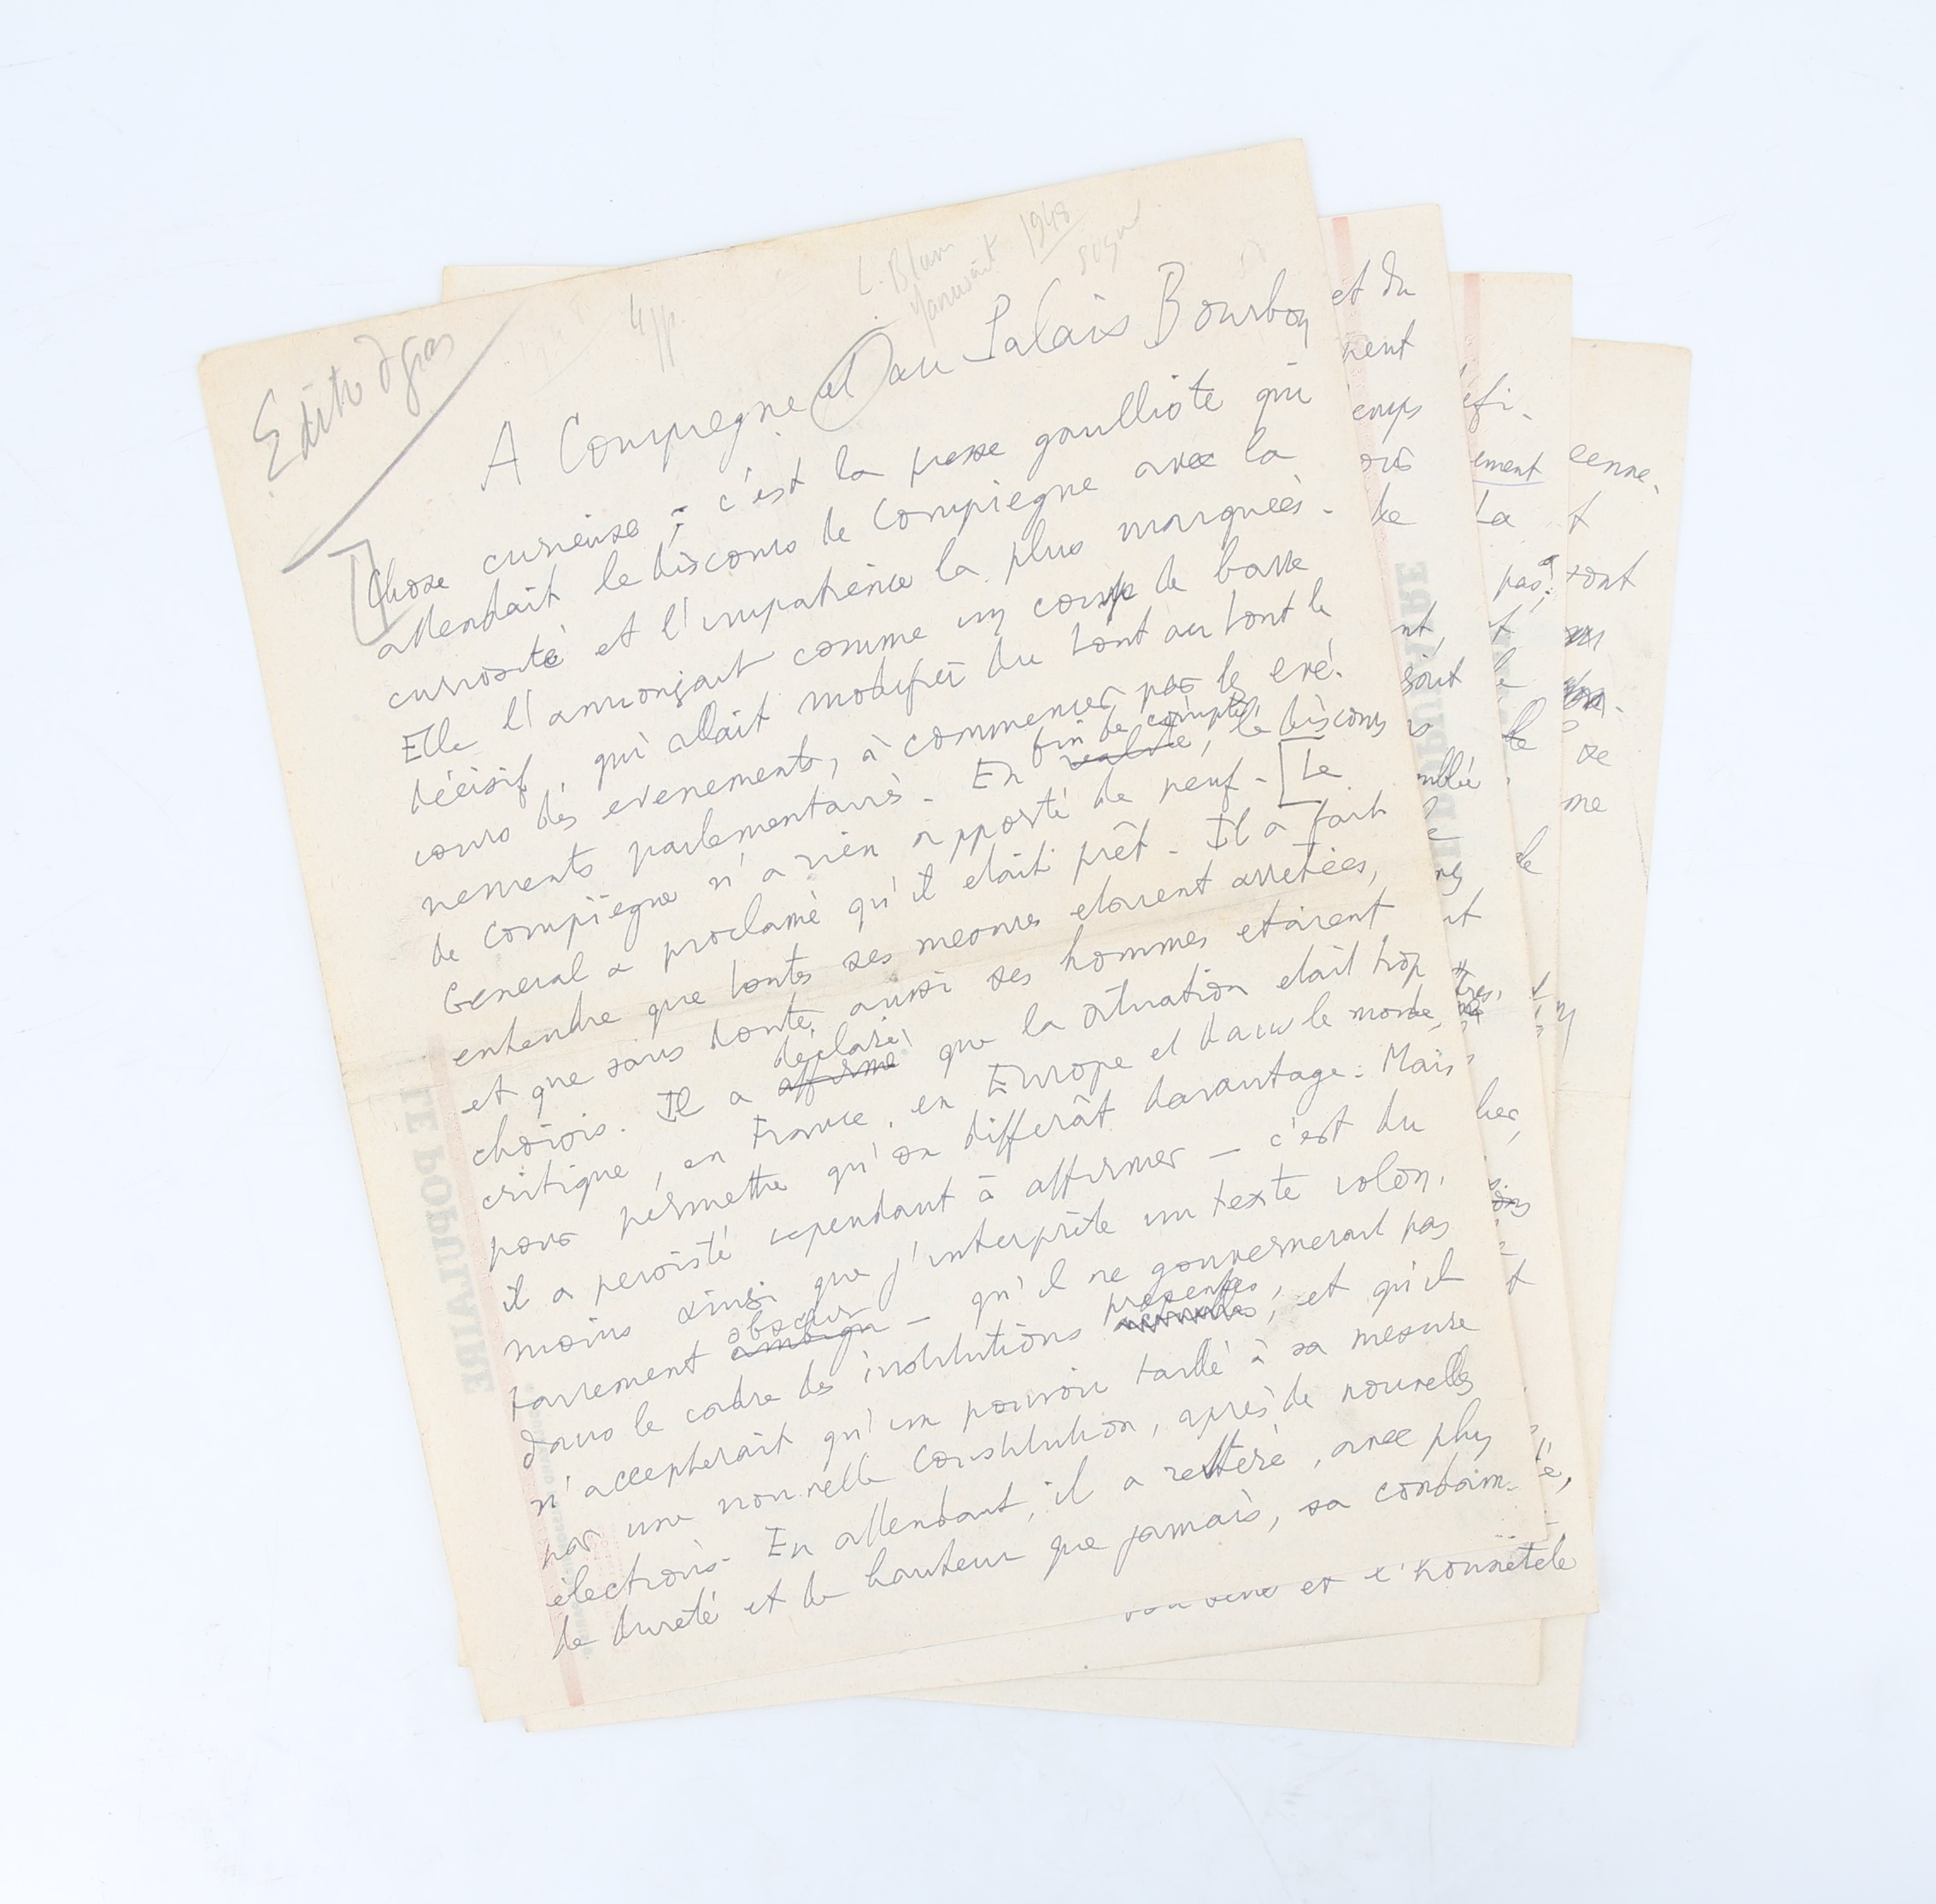 L. Blum
Manuscrit 1948
signé
4 pp.
Edito
A Compiegne et au Palais Bourbon
Chose curieuse ; c'est la presse gaulliste qui
attendait le discours de Compiegne avec la
curiosité et l'impatience la plus marquées.
Elle l'annonçait comme un coup de barre
décisif, qui allait modifier du tout au tout le
cours des evenements, à commencer par le evé-
nements parlementaires. En fin de compte, le discours
réalité
de Compiegne n'a rien apporté de neuf. [Le
General a proclamé qu'il etait prêt. Il a fait
entendre que toutes ses mesures etaient arretées,
et que sans doute, aussi ses hommes etaient
choisis. Il a déclaré que la situation etait trop
affirmé
critique, en France, en Europe et dans le monde,
pour permettre qu'on differât davantage. Mais
il a persisté cependant à affirmer — c'est du
moins ainsi que j'interprète un texte volon-
tairement obscur — qu'il ne gouvernerait pas
ambigu
dans le cadre des institutions presentes, et qu'il
actuelles
n'accepterait qu'un pouvoir taillé à sa mesure
par une nouvelle Constitution, après de nouvelles
élections. En attendant, il a réitéré, avec plus
de dureté et de hauteur que jamais, sa condam-
et l'honnêteté
LE POPULAIRE
et du
ement
pas
sont
se
me
de
LE POPULAIRE